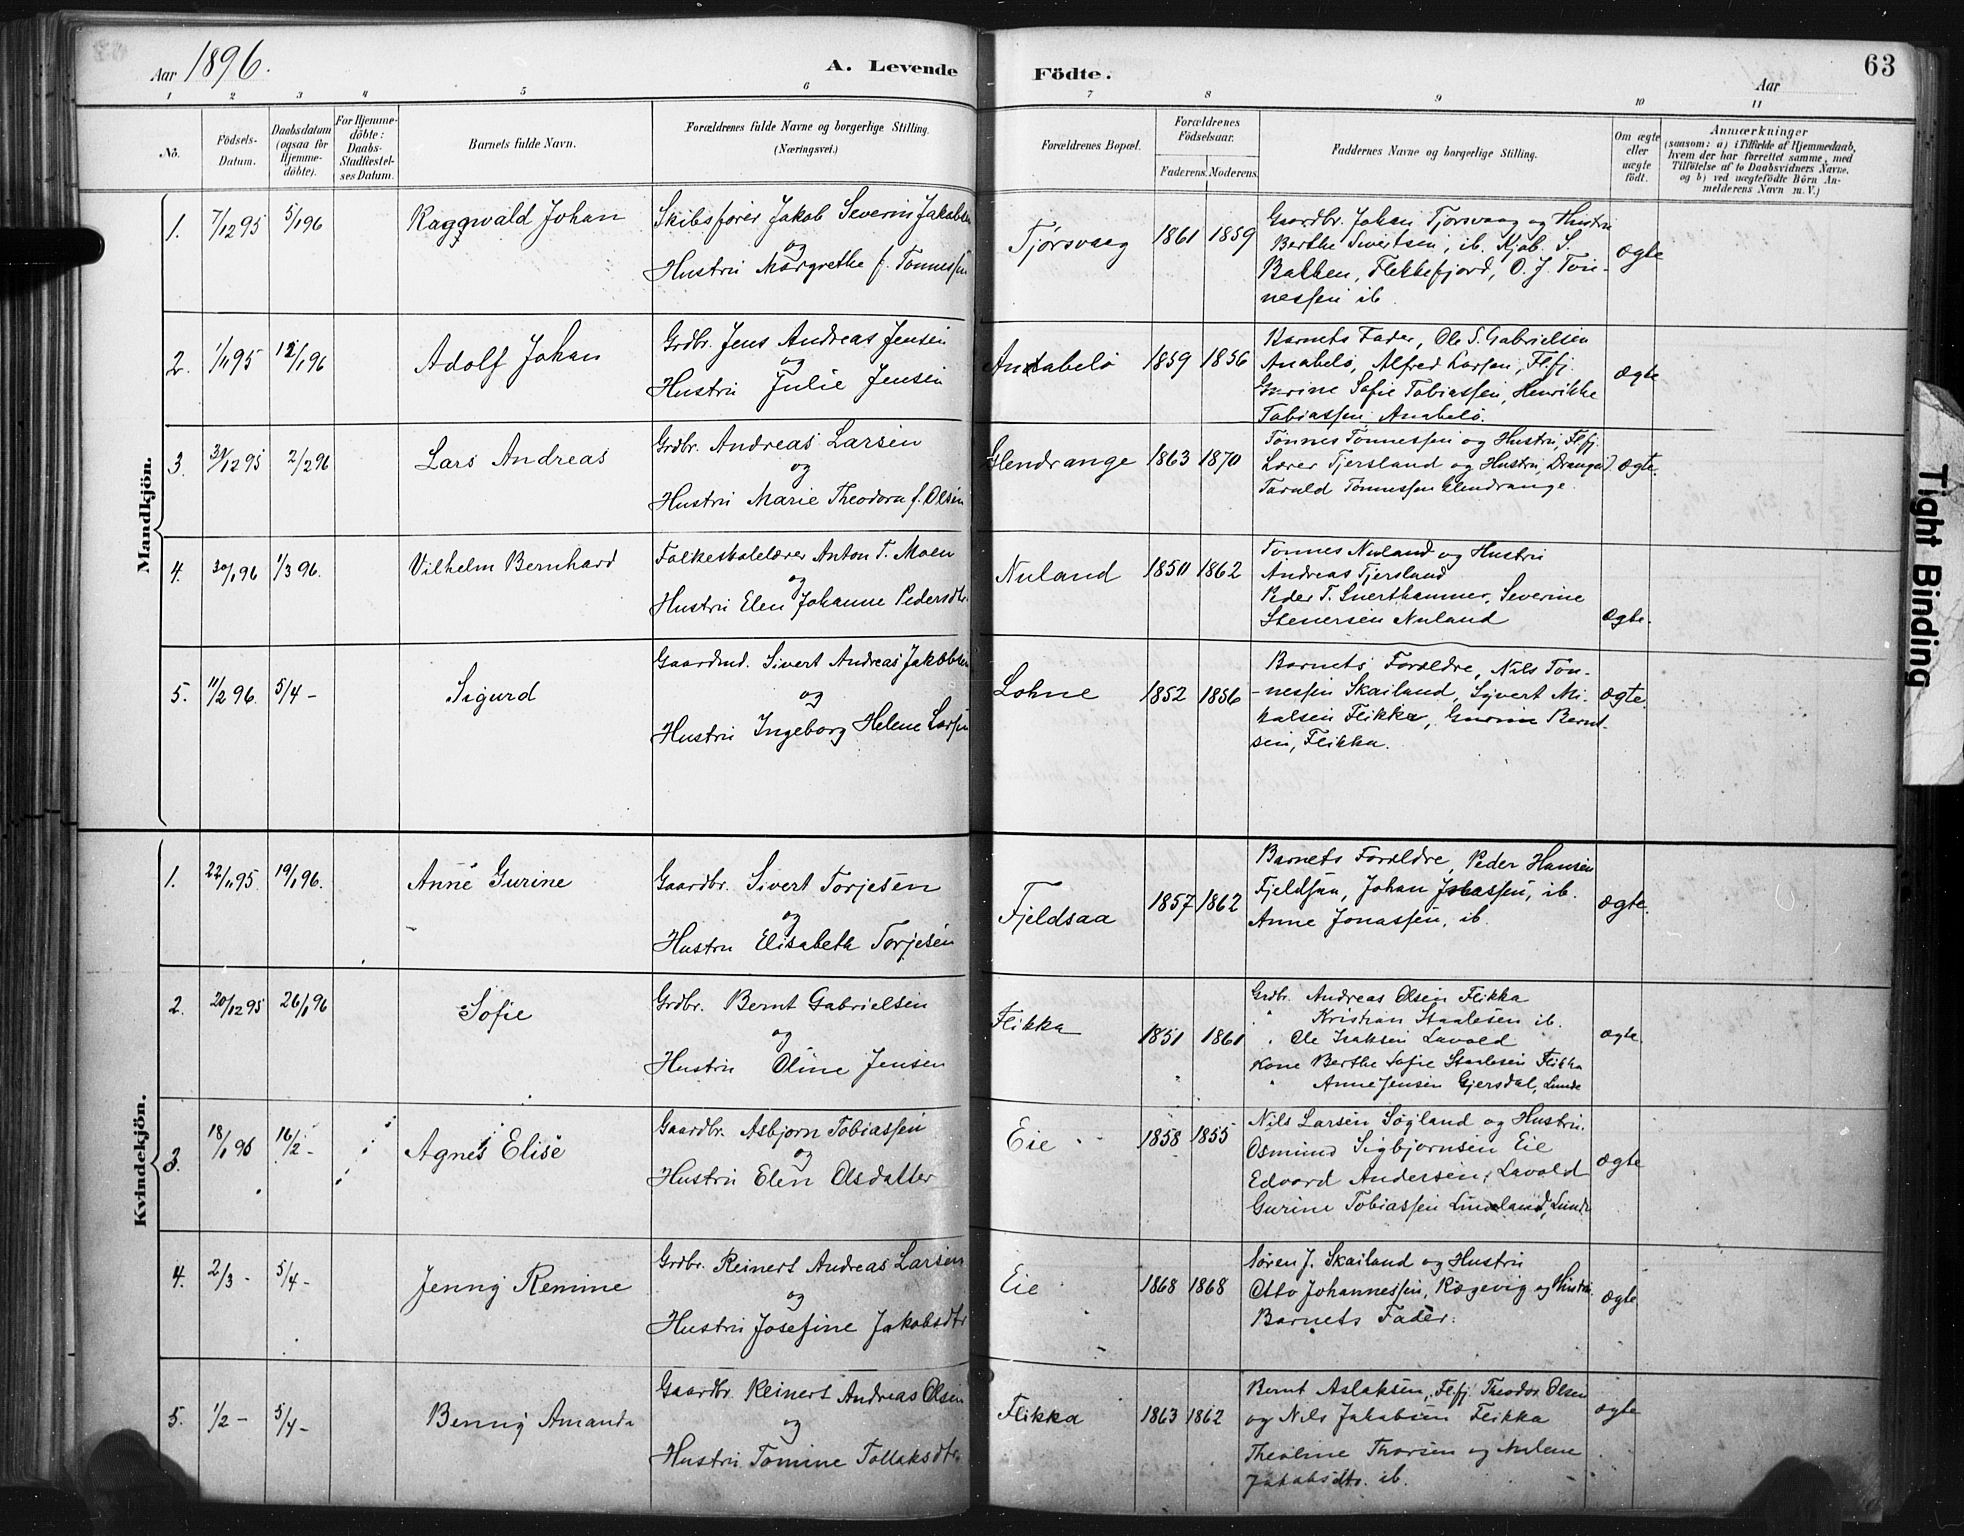 Aar 1896.
A. Levende Födte.
Aar
63
1 2 3 4 5 6 7 8 9 10 11
No.
Födsels-Datum.
Daabsdatum (ogsaa for Hjemme-döbte).
For Hjemme-döbte: Daabs-Stadfæstel-ses Datum.
Barnets fulde Navn.
Forældrenes fulde Navne og borgerlige Stilling. (Næringsvei.)
Forældrenes Bopæl.
Forældrenes Födselsaar.
Faderens. Moderens.
Faddernes Navne og borgerlige Stilling.
Om ægte eller uægte födt.
Anmærkninger
(saasom: a) i Tilfælde af Hjemmedaab, hvem der har forrettet samme, med Tilföielse af to Daabsvidners Navne, og b) ved uægtefödte Börn An-melderens Navn m. V.)
Mandkjön.
1. 7/12 95 5/1 96 Raggwald Johan
Skibsfører Jakob Severin Jakobsen
og
Hustru Margrethe f. Tønnessen
Tjørsvaag 1861 1859
Gaardbr. Johan Tjorsvaag og Hustru
Berthe Sivertsen, ib. Kjøb. S.
Bakken, Flekkefjord, O. J. Tøn-
nessen ib.
ægte
2. 1/11 95 12/1 96 Adolf Johan
Grdbr. Jens Andreas Jensen
og
Hustru Julie Jensen
Anabelö 1859 1856
Barnets Fader, Ole S. Gabrielsen
Anabelö, Alfred Larsen, Flfj.
Gurine Sofie Tobiassen, Henrikke
Tobiassen Anabelö.
ægte
3. 31/12 95 2/2 96 Lars Andreas
Grdbr. Andreas Larsen
og
Hustru Marie Theodora f. Olsen
Glendrange 1863 1870
Tønnes Tønnessen og Hustru, Flfj.
Lærer Tjersland og Hustru, Drangeid.
Tarald Tønnessen Glendrange.
ægte.
4. 30/1 96 1/3 96. Vilhelm Bernhard
Folkeskolelærer Anton T. Moen
og
Hustru Elen Johanne Pedersdtr.
Nuland 1850 1862
Tønnes Nuland og Hustru
Andreas Tjersland
Peder T. Snerthammer, Severine
Stenersen Nuland
ægte.
5. 11/2 96. 5/4 - Sigurd
Gaardmd. Sivert Andreas Jakobsen
og
Hustru Ingeborg Helene Larsen
Lohne 1852 1856
Barnets Forældre, Nils Tøn-
-nessen Skailand, Syvert Mi-
kalsen Flikka, Gurine Bernt-
sen, Flikka.
ægte.
Kvindekjön.
1. 22/11 95. 19/1 96. Anne Gurine
Gaardbr. Sivert Torjesen
og
Hustru Elisabeth Torjesen
Fjeldsaa 1857 1862
Barnets Forældre, Peder Hansen
Fjeldsaa, Johan Jonassen, ib.
Anne Jonassen, ib.
ægte.
2. 20/12 95 26/1 96 Sofie
Grdbr. Bernt Gabrielsen
og
Hustru Oline Jensen
Flikka 1851 1861
Grdbr. Andreas Olsen Flikka
" Kristian Staalesen ib.
" Ole Isaksen Lavold
Kone Berthe Sofie Staalesen Flikka
" Anne Jensen Gjersdal, Lunde
ægte
3. 18/1 96 16/2 - Agnes Elise
Gaardbr. Asbjørn Tobiassen
og
Hustru Elen Olsdatter
Eie 1858 1855
Nils Larsen Søgland og Hustru.
Osmund Sigbjørnsen Eie
Edvard Andersen, Lavold
Gurine Tobiassen Lindland, Lunde
ægte
4. 2/3 - 5/4 - Jenny Remine
Grdbr. Reinert Andreas Larsen
og
Hustru Josefine Jakobsdtr
Eie 1868 1868
Søren J. Skailand og Hustru
Otto Johannessen, Rægevig og Hustru.
Barnets Fader.
ægte
5. 1/2 - 5/4 - Benny Amanda
Gaardbr. Reinert Andreas Olsen
og
Hustru Tomine Tollaksdtr.
Flikka 1863 1862
Bernt Aslaksen, Flfj. Theodor Olsen
og Nils Jakobsen Flikka
Theoline Thorsen og
Jakobsdtr. ib.
ægte
Tight Binding